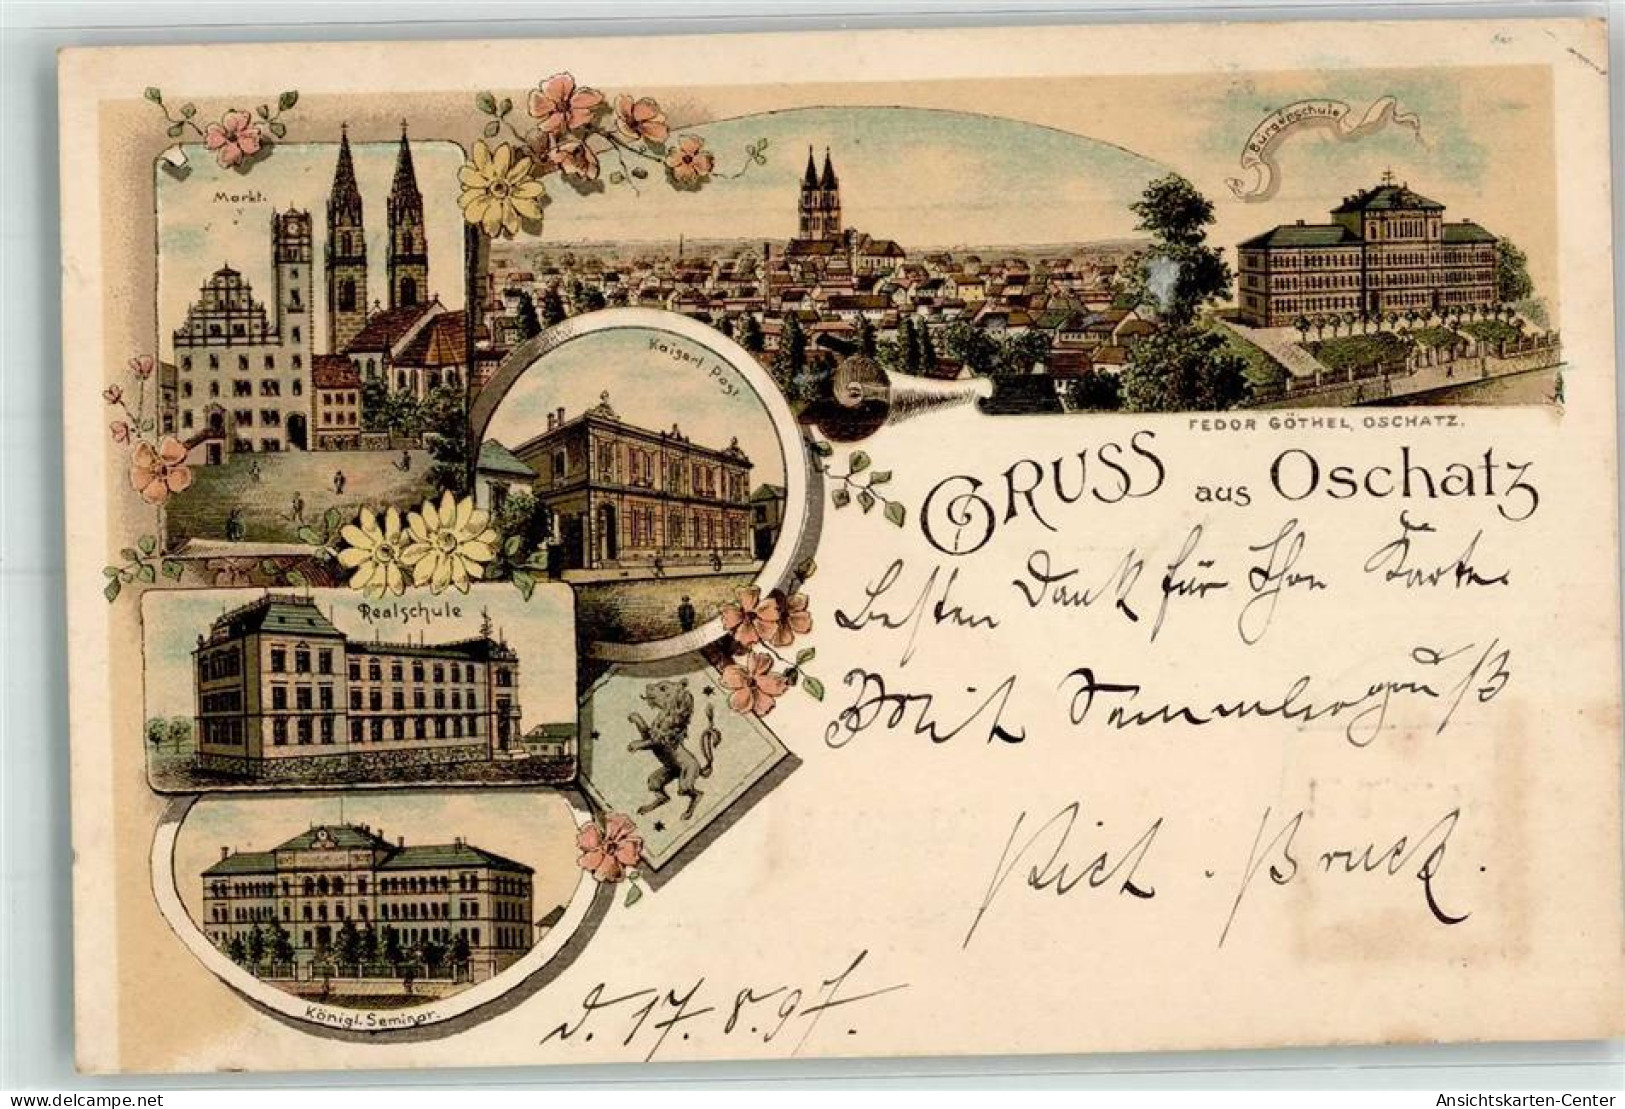 Markt.
Bürgerschule
Kaiserl. Post.
FEDOR GÖTHEL, OSCHATZ.
GRUSS aus Oschatz
Besten Dank für Ihre Karte.
Realschule
Mit Sammlergruß
Rich. Bruck.
Königl. Seminar.
d. 17. 8. 97.
www.delcampe.net
Ansichtskarten-Center